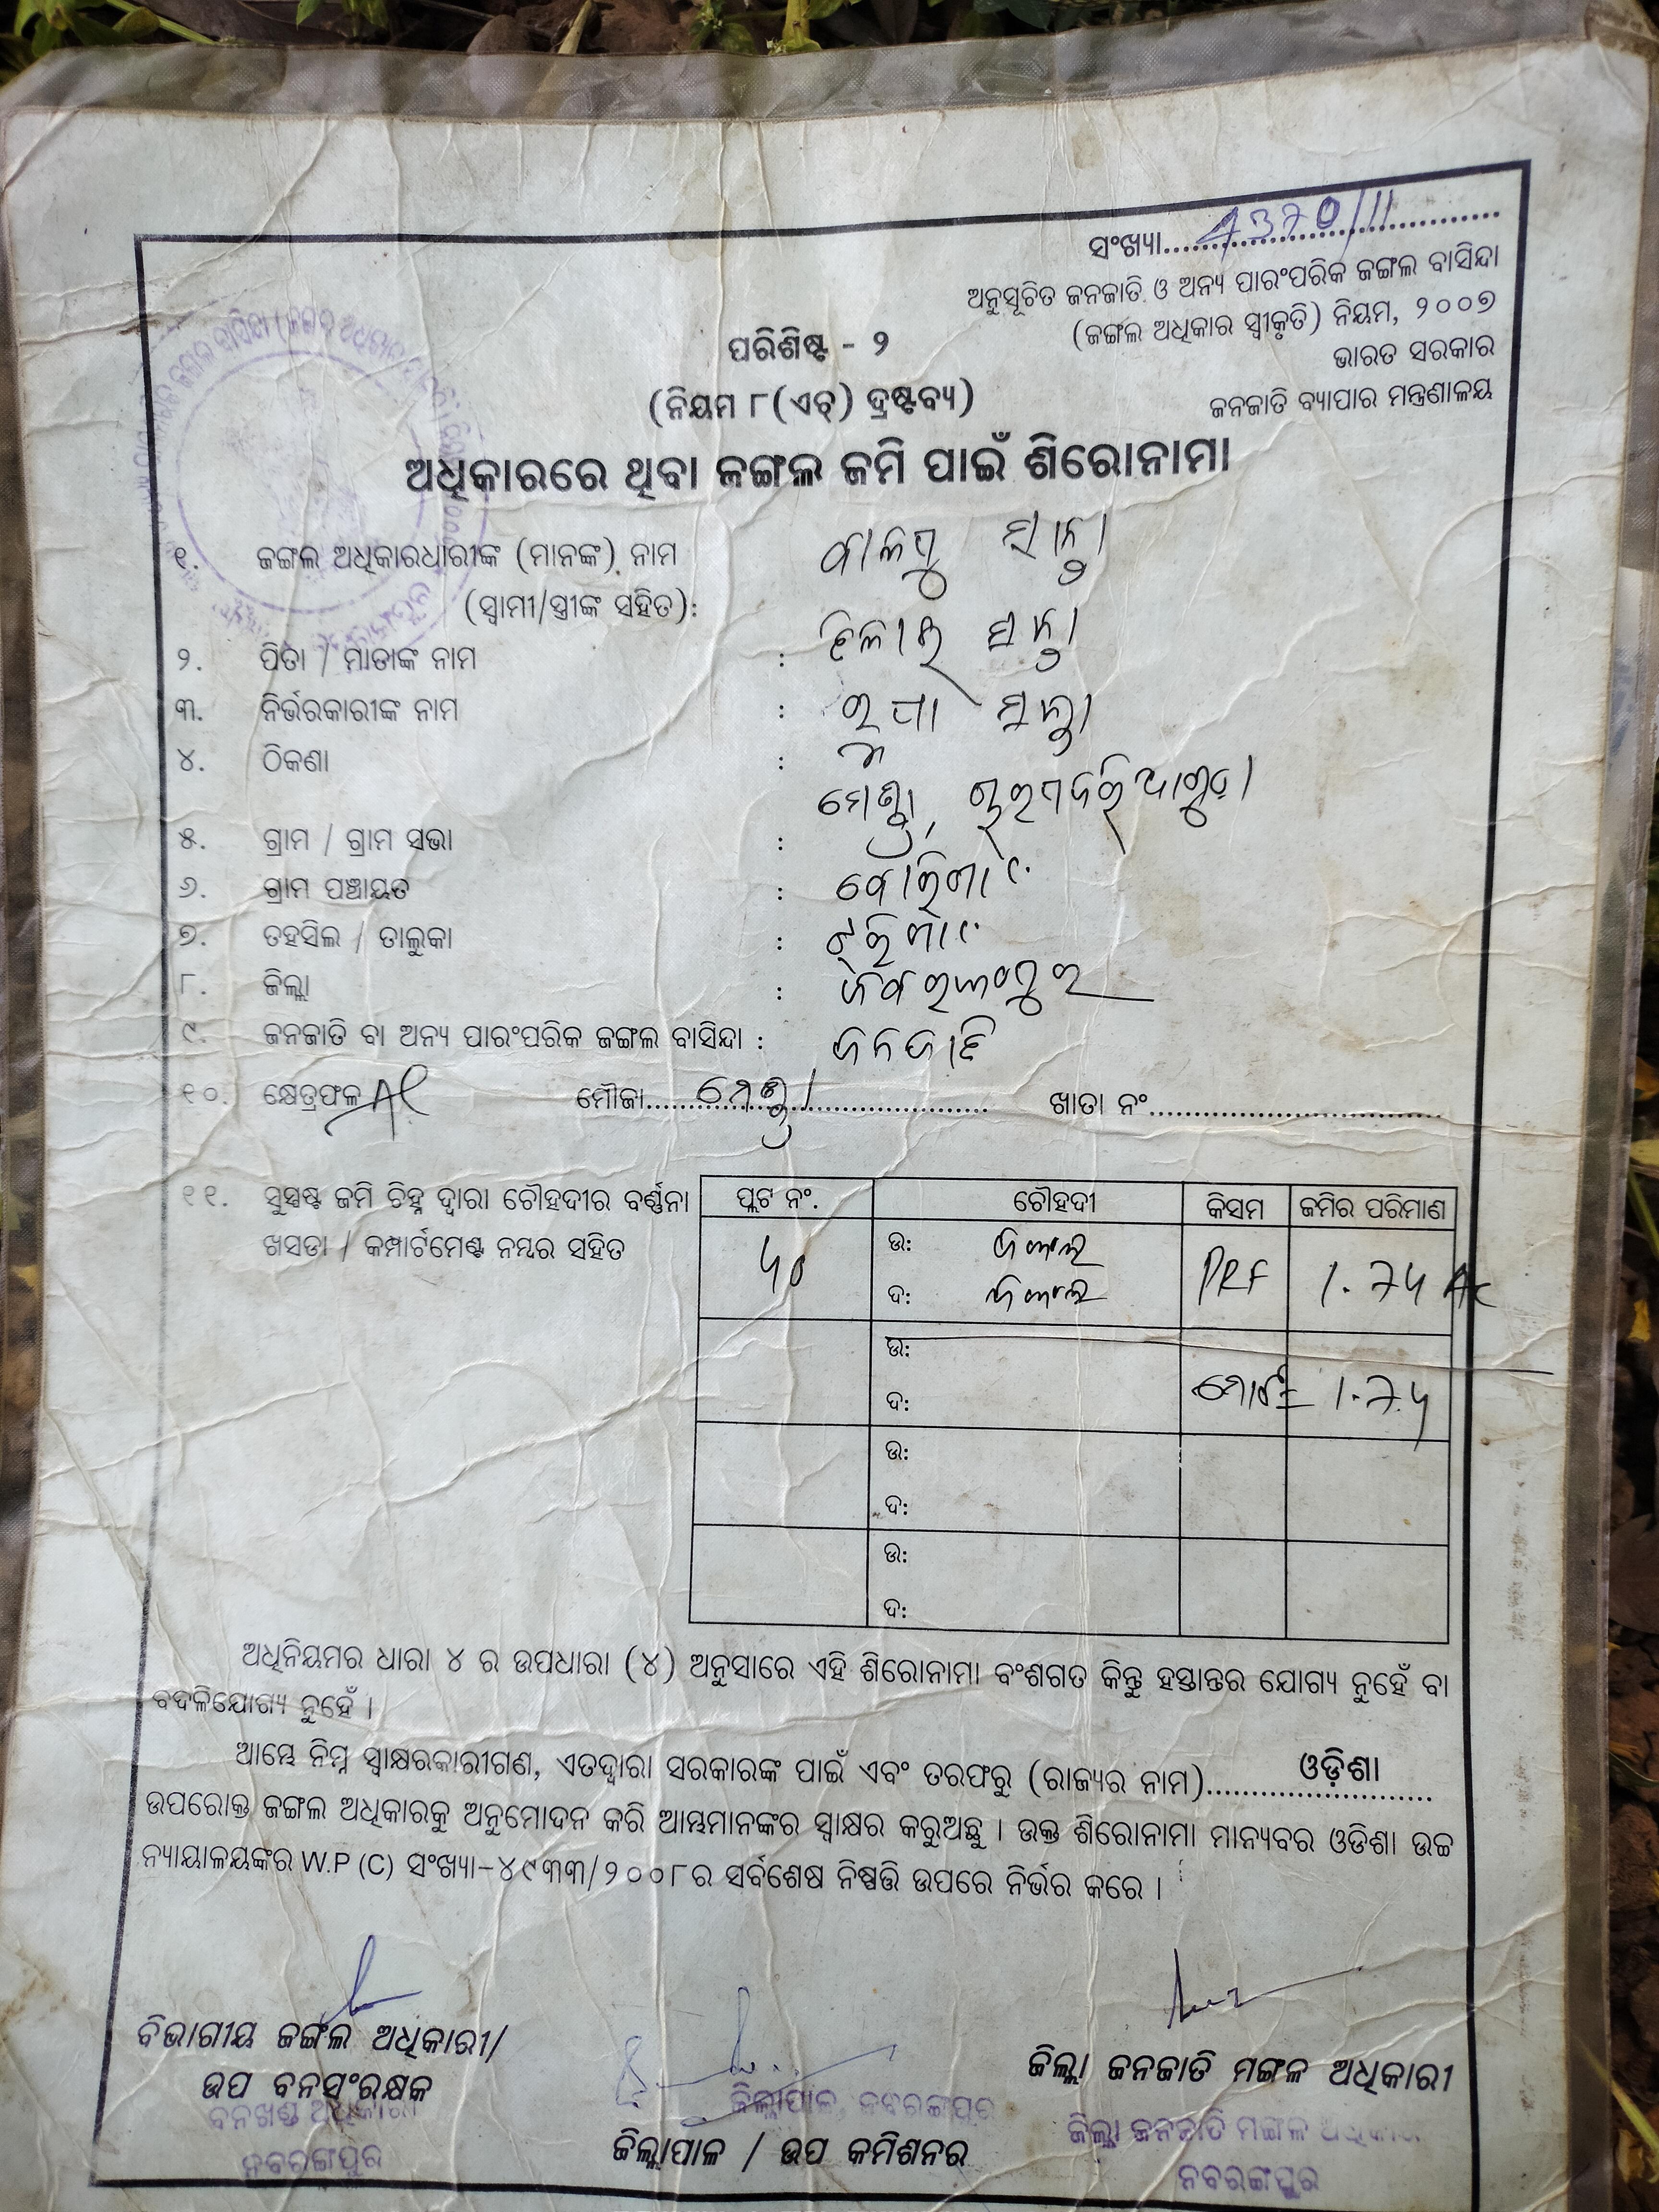 ସଂଖ୍ୟା............4370/11............
ଅନୁସୂଚିତ ଜନଜାତି ଓ ଅନ୍ୟ ପାରଂପରିକ ଜଙ୍ଗଲ ବାସିନ୍ଦା
(ଜଙ୍ଗଲ ଅଧିକାର ସ୍ୱୀକୃତି) ନିୟମ, ୨୦୦୭
ଭାରତ ସରକାର
ଜନଜାତି ବ୍ୟାପାର ମନ୍ତ୍ରଣାଳୟ
ପରିଶିଷ୍ଟ - ୨
(ନିୟମ ୮(ଏଚ୍) ଦ୍ରଷ୍ଟବ୍ୟ)
ଅଧିକାରରେ ଥିବା ଜଙ୍ଗଲ ଜମି ପାଇଁ ଶିରୋନାମା
୧. ଜଙ୍ଗଲ ଅଧିକାରଧାରୀଙ୍କ (ମାନଙ୍କ) ନାମ
(ସ୍ୱାମୀ/ସ୍ତ୍ରୀଙ୍କ ସହିତ):
୨. ପିତା / ମାତାଙ୍କ ନାମ :
୩. ନିର୍ଭରକାରୀଙ୍କ ନାମ :
୪. ଠିକଣା :
୫. ଗ୍ରାମ / ଗ୍ରାମ ସଭା :
୬. ଗ୍ରାମ ପଞ୍ଚାୟତ :
୭. ତହସିଲ / ତାଲୁକା : ଝରିଗାଁ
୮. ଜିଲ୍ଲା : ନବରଙ୍ଗପୁର
୯. ଜନଜାତି ବା ଅନ୍ୟ ପାରଂପରିକ ଜଙ୍ଗଲ ବାସିନ୍ଦା : ଜନଜାତି
୧୦. କ୍ଷେତ୍ରଫଳ ମୌଜା.................... ଖାତା ନଂ....................
୧୧. ସୁସ୍ପଷ୍ଟ ଜମି ଚିହ୍ନ ଦ୍ୱାରା ଚୌହଦୀର ବର୍ଣ୍ଣନା
ଖସଡା / କମ୍ପାର୍ଟମେଣ୍ଟ ନମ୍ବର ସହିତ
ପ୍ଲଟ ନଂ. ଚୌହଦୀ କିସମ ଜମିର ପରିମାଣ
ଉ: ଜଙ୍ଗଲ
50 PRF 1.75 Ac
ଦ: ଜଙ୍ଗଲ
ଉ:
ମୋଟ= 1.75
ଦ:
ଉ:
ଦ:
ଉ:
ଦ:
ଅଧିନିୟମର ଧାରା ୪ ର ଉପଧାରା (୪) ଅନୁସାରେ ଏହି ଶିରୋନାମା ବଂଶଗତ କିନ୍ତୁ ହସ୍ତାନ୍ତର ଯୋଗ୍ୟ ନୁହେଁ ବା
ବଦଳିଯୋଗ୍ୟ ନୁହେଁ ।
ଆମ୍ଭେ ନିମ୍ନ ସ୍ୱାକ୍ଷରକାରୀଗଣ, ଏତଦ୍ୱାରା ସରକାରଙ୍କ ପାଇଁ ଏବଂ ତରଫରୁ (ରାଜ୍ୟର ନାମ)........ଓଡ଼ିଶା........
ଉପରୋକ୍ତ ଜଙ୍ଗଲ ଅଧିକାରକୁ ଅନୁମୋଦନ କରି ଆମ୍ଭମାନଙ୍କର ସ୍ୱାକ୍ଷର କରୁଅଛୁ । ଉକ୍ତ ଶିରୋନାମା ମାନ୍ୟବର ଓଡିଶା ଉଚ୍ଚ
ନ୍ୟାୟାଳୟଙ୍କର W.P (C) ସଂଖ୍ୟା-୪୯୩୩/୨୦୦୮ ର ସର୍ବଶେଷ ନିଷ୍ପତ୍ତି ଉପରେ ନିର୍ଭର କରେ ।
ବିଭାଗୀୟ ଜଙ୍ଗଲ ଅଧିକାରୀ/
ଉପ ବନସଂରକ୍ଷକ
ବନଖଣ୍ଡ ଅଧିକାରୀ
ନବରଙ୍ଗପୁର
ଜିଲ୍ଲାପାଳ, ନବରଙ୍ଗପୁର
ଜିଲ୍ଲାପାଳ / ଉପ କମିଶନର
ଜିଲ୍ଲା ଜନଜାତି ମଙ୍ଗଳ ଅଧିକାରୀ
ଜିଲ୍ଲା ଜନଜାତି ମଙ୍ଗଳ ଅଧିକାରୀ
ନବରଙ୍ଗପୁର